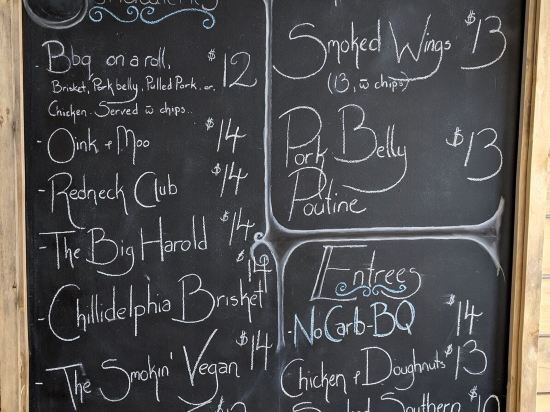 - Bbq on a roll, $12
Brisket, Pork belly, Pulled Pork or
Chicken. Served w̄ chips..
- Oink & Moo $14
- Redneck Club $14
- The Big Harold $14
- Chillidelphia Brisket $14
- The Smokin' Vegan $14
Smoked Wings $13
(13, w̄ chips)
Pork Belly $13
Poutine
Entrees
- No Carb-BQ $14
Chicken & Doughnuts $13
Southern